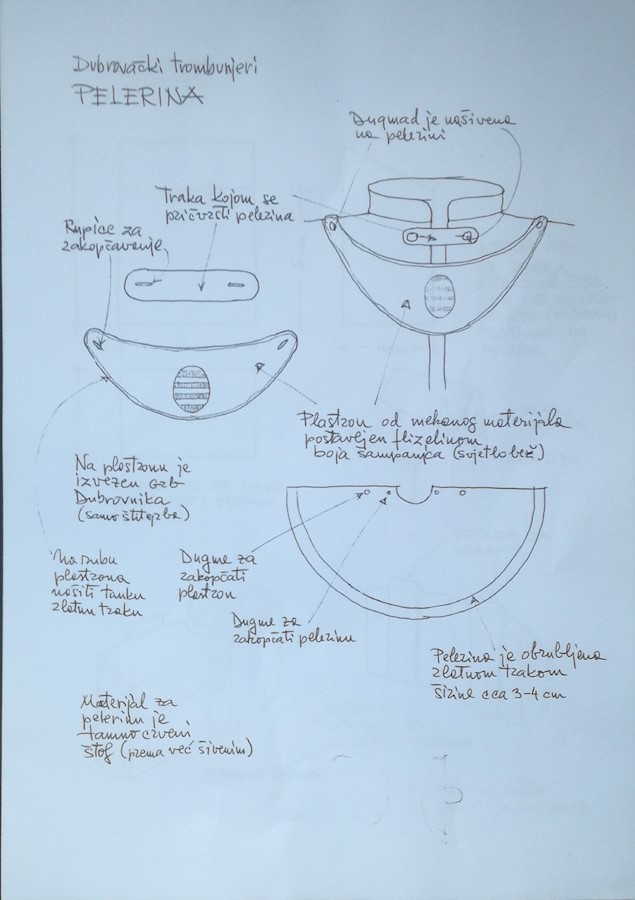 Dubrovački trombunjeri
PELERINA
Dugmad je našivena
na pelerini
Traka kojom se
pričvrsti pelerina
Rupice za
zakopčavanje
Plastron od mekanog materijala
postavljen flizelinom
boja šampanjca (svjetlo bež)
Na plastronu je
izvezen Grb
Dubrovnika
(samo štit, grba)
Na rubu
plastrona
našiti tanku
zlatnu traku
Dugme za
zakopčati
plastron
Dugme za
zakopčati pelerinu
Pelerina je obrubljena
zlatnom trakom
širine cca 3-4 cm
Materijal za
pelerinu je
tamno crveni
štof (prema već šivenim)